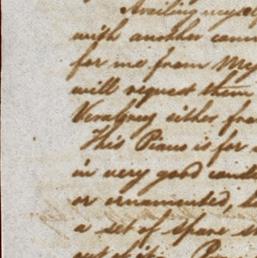 Availing myse
with another comm
for me from My
will request them
VeraCruz either fro
This Piano is for
in very good condi
or ornamented, b
a set of spare st
out of it.